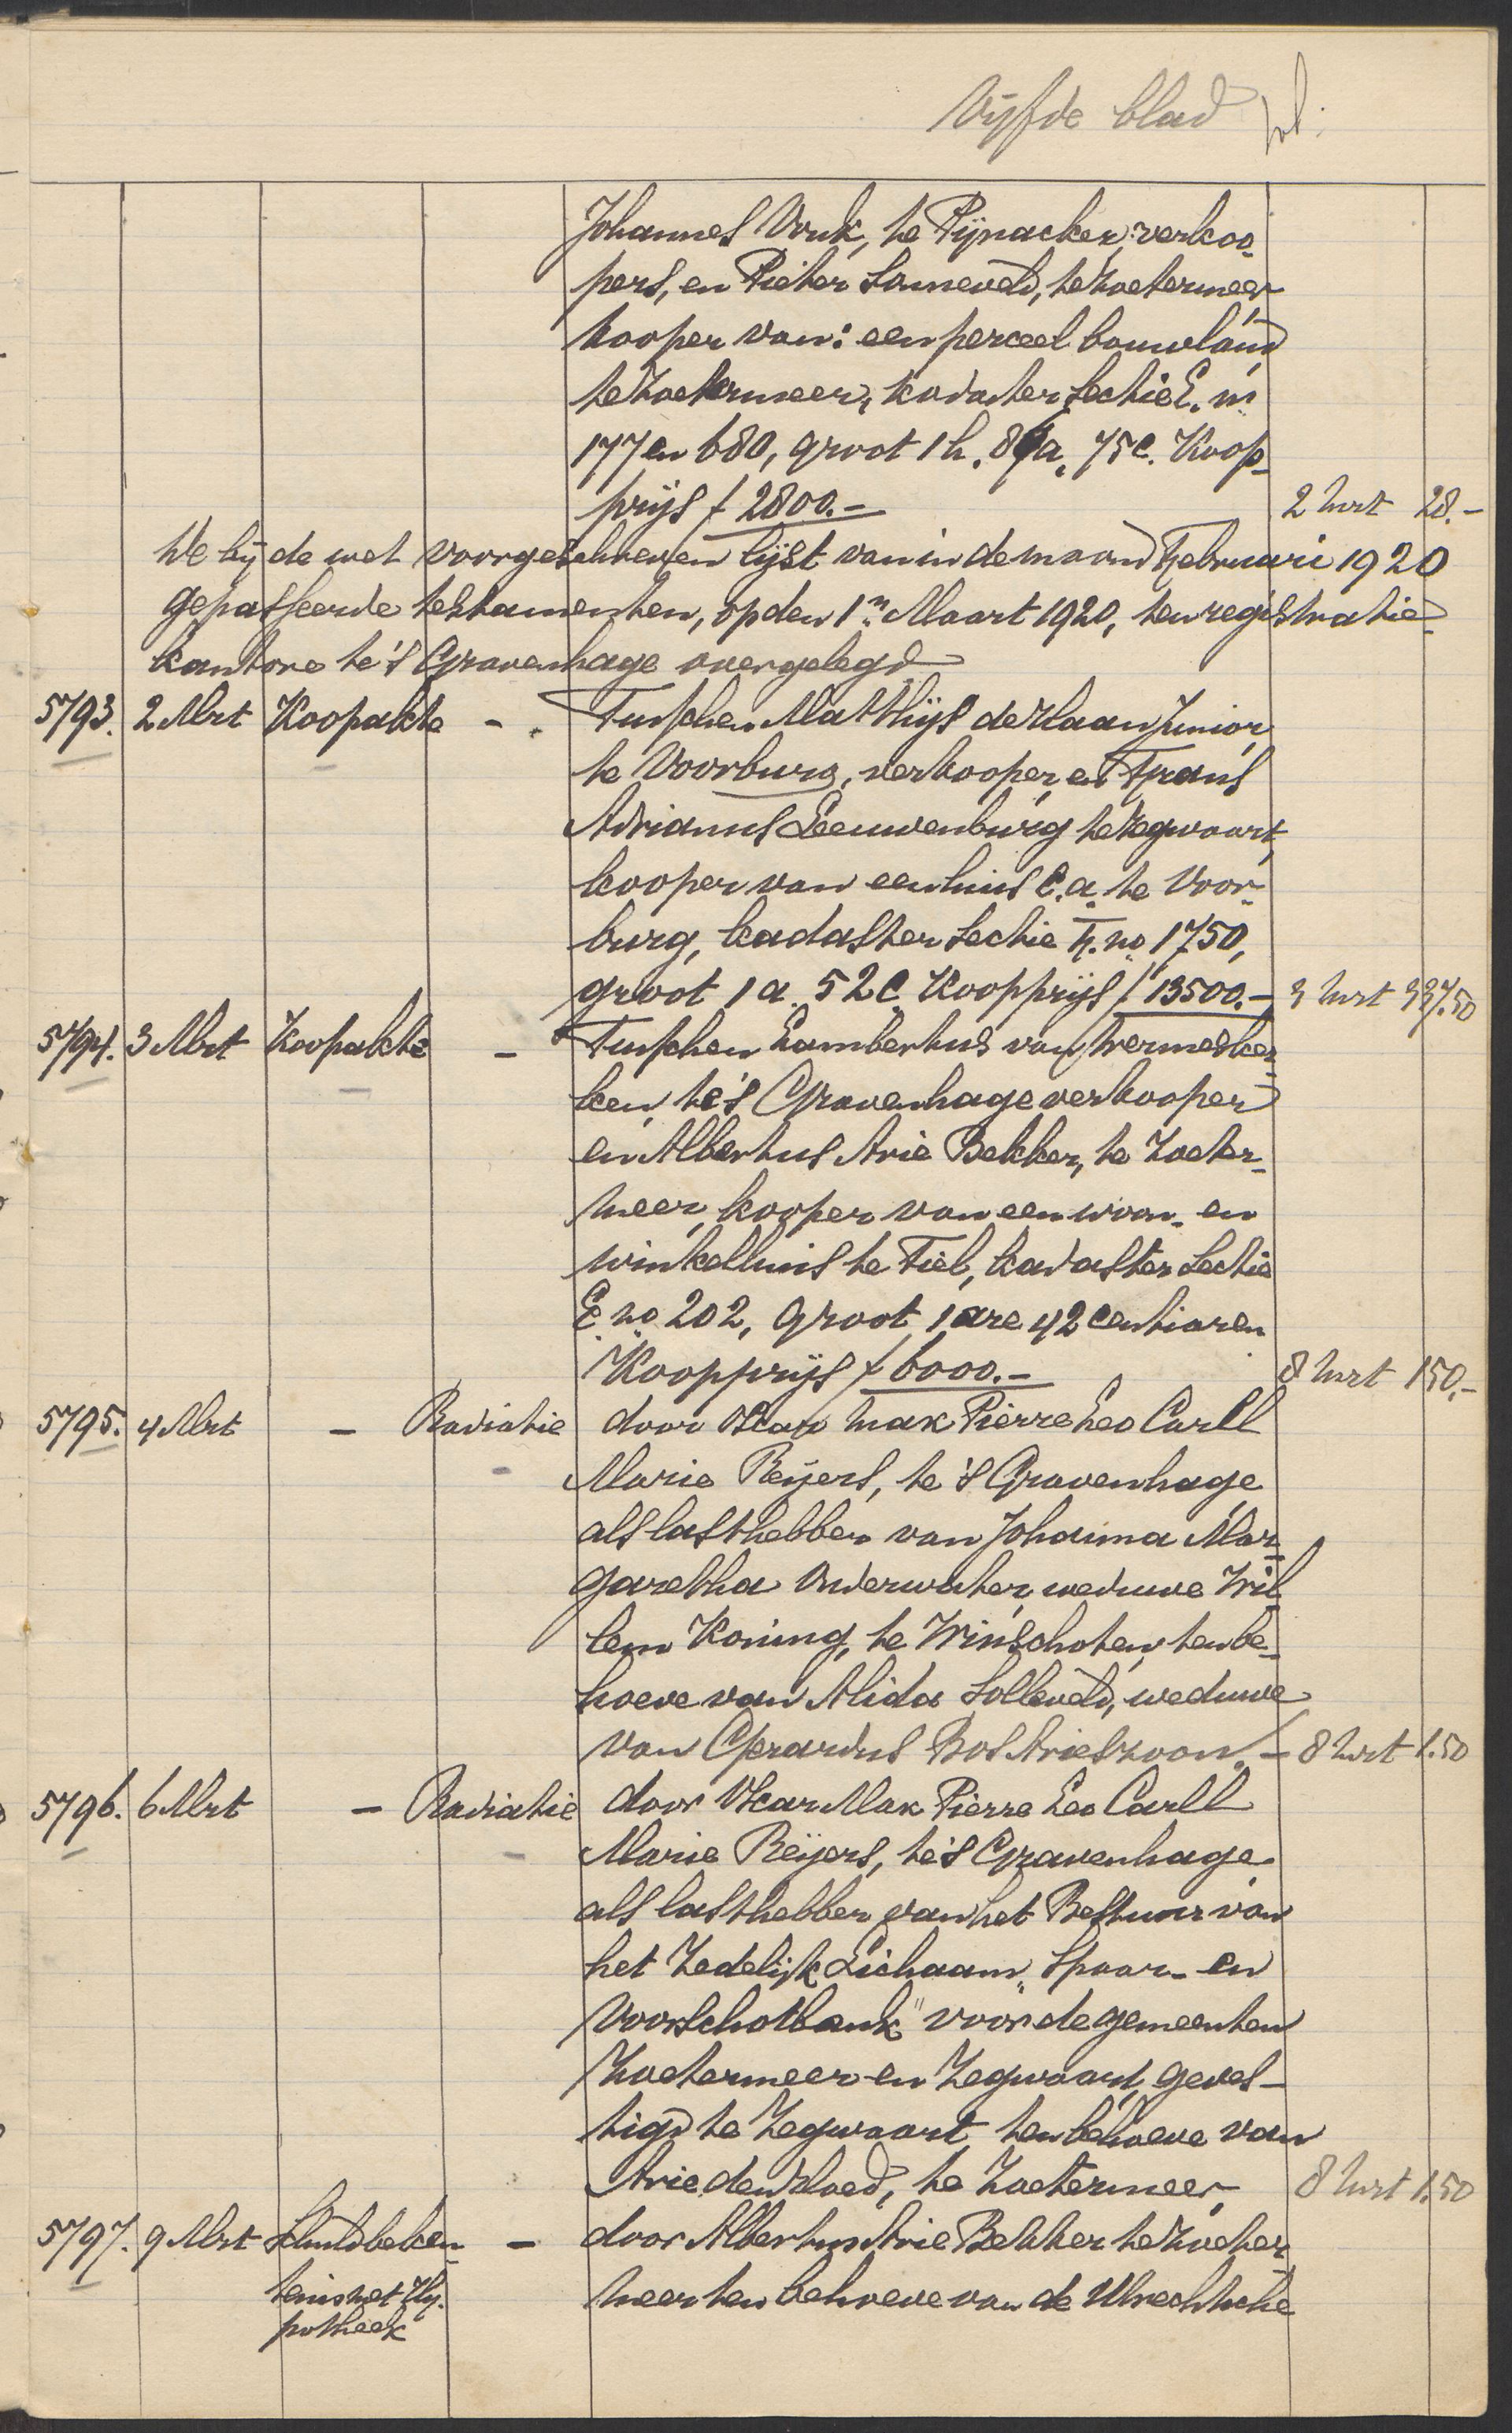 Vijfde blad
Johannes Vonk, te Pijnacker, verkoo-
pers, en Pieter Sonneveld, te Zoetermeer
kooper van: een perceel bouwland
te Zoetermeer, kadaster Sectie E. nos
177 en 680, groot 1 h. 89 a. 75 c. Koop-
prijs f 2800.- 2 Mrt 28.-
De bij de wet voorgeschreven lijst van in de maand Februari 1920
gepasseerde testamenten, op den 1n Maart 1920, ten registratie-
kantore te 's Gravenhage overgelegd
5793. 2 Mrt Koopakte - Tusschen Matthijs de Haan Junior,
te Voorburg, verkooper, en Frans
Adrianus Leeuwenburg te Zegwaart,
kooper van een huis c.a. te Voor-
burg, kadaster Sectie F. no. 1750,
groot 1 a. 52 c. Koopprijs f 13500.- 3 Mrt 337.50
5794. 3 Mrt Koopakte - Tusschen Lambertus van Wermesker-
ken, te 's Gravenhage verkooper
en Albertus Arie Bekker, te Zoeter-
meer, kooper van een woon- en
winkelhuis te Tiel, kadaster Sectie
E no 202, groot 1 are 42 centiaren
Koopprijs f 6000.- 8 Mrt 150.-
5795. 4 Mrt - Radiatie door Oscar Max Pierre Leo Carll
Marie Reijers, te 's Gravenhage
als lasthebber van Johanna Mar-
garetha Onderwater, weduwe Wil-
lem Koning, te Winschoten, ten be-
hoeve van Alida Solleveld, weduwe
van Gerardus Bos Arieszoon. - 8 Mrt 1.50
5796. 6 Mrt - Radiatie door Oscar Max Pierre Leo Carll
Marie Reijers, te 's Gravenhage
als lasthebber van het Bestuur van
het Zedelijk Lichaam "Spaar- en
Voorschotbank" voor de gemeenten
Zoetermeer en Zegwaart, geves-
tigd te Zegwaart ten behoeve van
Arie den Hoed, te Zoetermeer 8 Mrt 1.50
5797. 9 Mrt Schuldbeken- - door Albertus Arie Bekker te Zoeter-
tenis met Hy- meer ten behoeve van de Utrechtsche
potheek